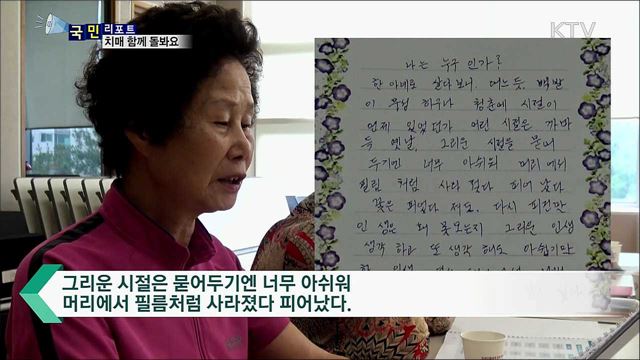 국민 리포트
치매 함께 돌봐요
KTV
나는 누구 인가?
한 아내로 살다 보니. 어느듯. 백발
이 무성 하구나 청춘에 시절이
언제 있었던가 어린 시절은 까마
득 옛날. 그리운 시절을 묻어
두기엔 너무 아쉬워 머리 에서
필림 처럼 사라 졌다 피어 났다
꽃은 피었다 져도. 다시 피건만
인생은 왜 못오는지 그리운 인생
생각 하고 또 생각 해도 아쉽기만
그리운 시절은 묻어두기엔 너무 아쉬워
머리에서 필름처럼 사라졌다 피어났다.